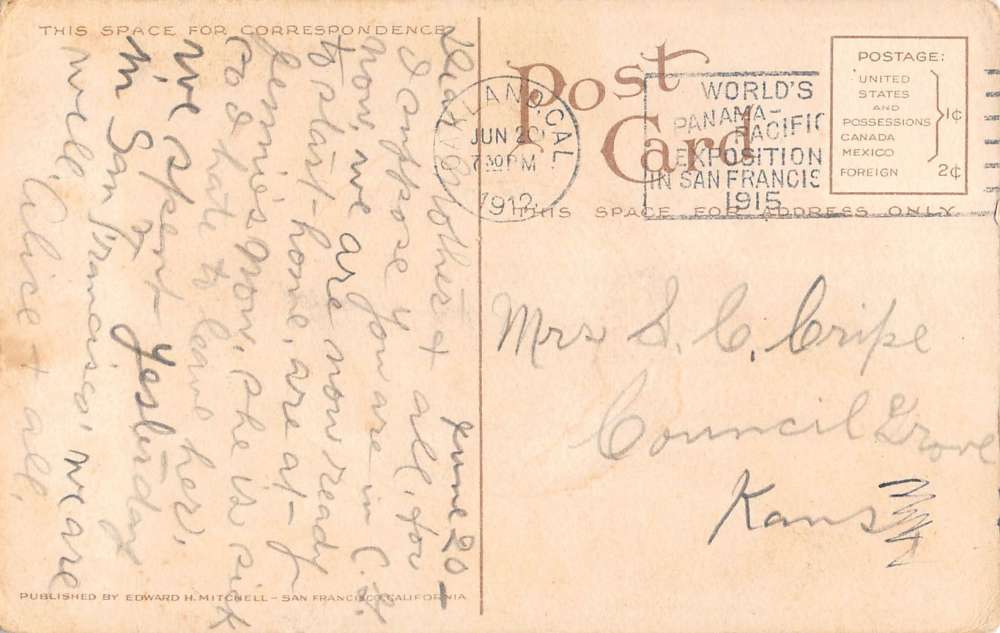 THIS SPACE FOR CORRESPONDENCE
Post
Card
THIS SPACE FOR ADDRESS ONLY
POSTAGE:
UNITED
STATES
AND
POSSESSIONS
CANADA
MEXICO
1¢
FOREIGN 2¢
LAND, CAL.
JUN 20
7 30 PM
1912
WORLD'S
PANAMA-
PACIFIC
EXPOSITION
IN SAN FRANCIS
1915
June 20 -
Dear Mother & all,
I suppose you are in C. G.
now, we are now ready
to start home, are at
Jennie's now, she is sick
so hate to leave her,
We spent yesterday
in San Francisco, we are
well, Alice & all,
Mrs S. C. Cripe
Council Grove
Kans
PUBLISHED BY EDWARD H. MITCHELL - SAN FRANCISCO, CALIFORNIA